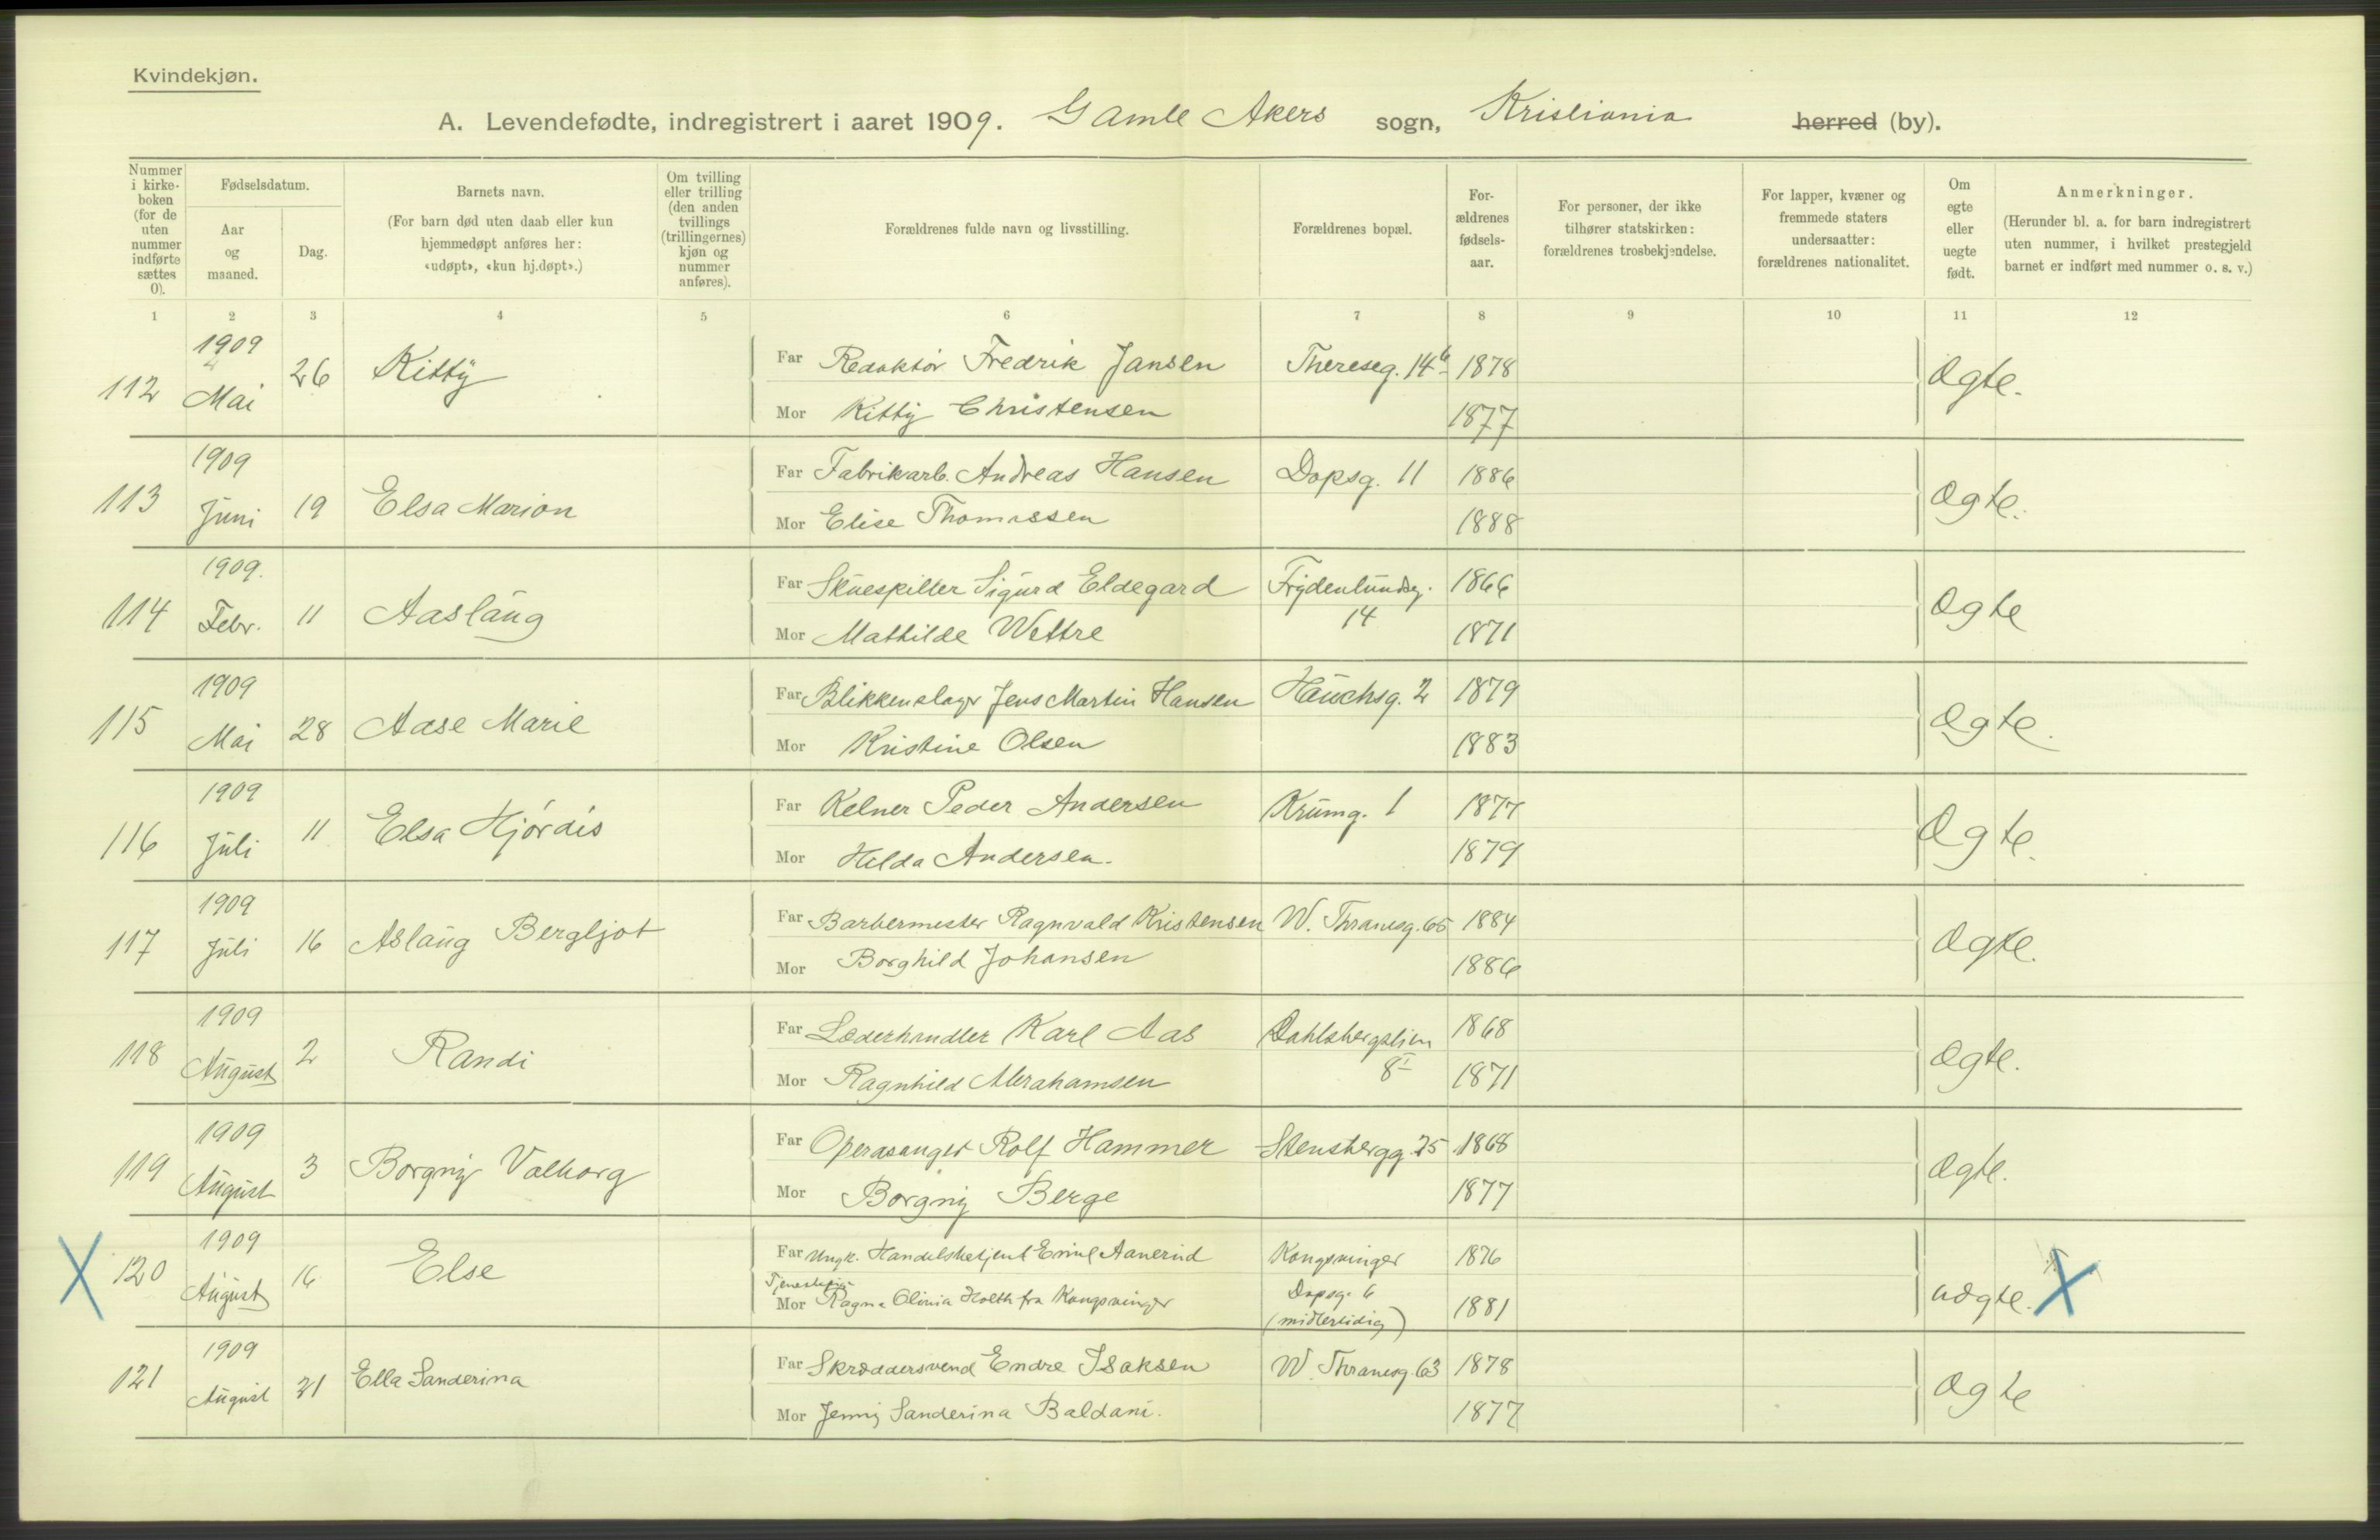 Kvindekjøn.
A. Levendefødte, indregistrert i aaret 1909. Gamle Akers sogn, Kristiania herred (by).
Nummer i kirke-boken (for de uten nummer indførte sættes 0).
Fødselsdatum.
Aar og maaned.
Dag.
Barnets navn.
(For barn død uten daab eller kun hjemmedøpt anføres her: «udøpt», «kun hj.døpt».)
Om tvilling eller trilling (den anden tvillings (trillingernes) kjøn og nummer anføres).
Forældrenes fulde navn og livsstilling.
Forældrenes bopæl.
For-ældrenes fødsels-aar.
For personer, der ikke tilhører statskirken: forældrenes trosbekjendelse.
For lapper, kvæner og fremmede staters undersaatter: forældrenes nationalitet.
Om egte eller uegte født.
Anmerkninger.
(Herunder bl. a. for barn indregistrert uten nummer, i hvilket prestegjeld barnet er indført med nummer o. s. v.)
1 2 3 4 5 6 7 8 9 10 11 12
112 1909 Mai 26 Kitty Far Redaktør Fredrik Jansen Thereseg. 14b 1878 Ægte.
Mor Kitty Christensen 1877
113 1909 Juni 19 Elsa Marion Far Fabrikarb. Andreas Hansen Dopsg. 11 1886 Ægte.
Mor Elise Thomassen 1888
114 1909. Febr. 11 Aaslaug Far Skuespiller Sigurd Eldegard Frydenlundsg. 14 1866 Ægte
Mor Mathilde Wettre 1871
115 1909 Mai 28 Aase Marie Far Blikkenslager Jens Martin Hansen Hauchsg. 2 1879 Ægte.
Mor Kristine Olsen 1883
116 1909 Juli 11 Elsa Hjórdis Far Kelner Peder Andersen Krumg. 1 1877 Ægte.
Mor Hilda Andersen. 1879
117 1909 Juli 16 Aslaug Bergljot Far Barbermester Ragnvald Kristensen W. Thranesg. 65 1884 Ægte.
Mor Borghild Johansen 1886
118 1909 August 2 Randi Far Læderhandler Karl Aas Dahlsbergstien 8I 1868 Ægte.
Mor Ragnhild Abrahamsen 1871
119 1909 August 3 Borgny Valborg Far Operasanger Rolf Hammer Stensbergg. 25 1868 Ægte.
Mor Borgny Berge 1877
X 120 1909 August 16 Else Far Ungk. Handelsbetjent Emil Aanerud Kongsvinger 1876 uægte. X
Tjenestepige
Mor Ragna Olivia Holth fra Kongsvinger Dopsg. 6 (midlertidig) 1881
121 1909 August 21 Ella Sanderina Far Skræddersvend Endre Isaksen W. Thranesg. 63 1878 Ægte
Mor Jenny Sanderina Baldani. 1877